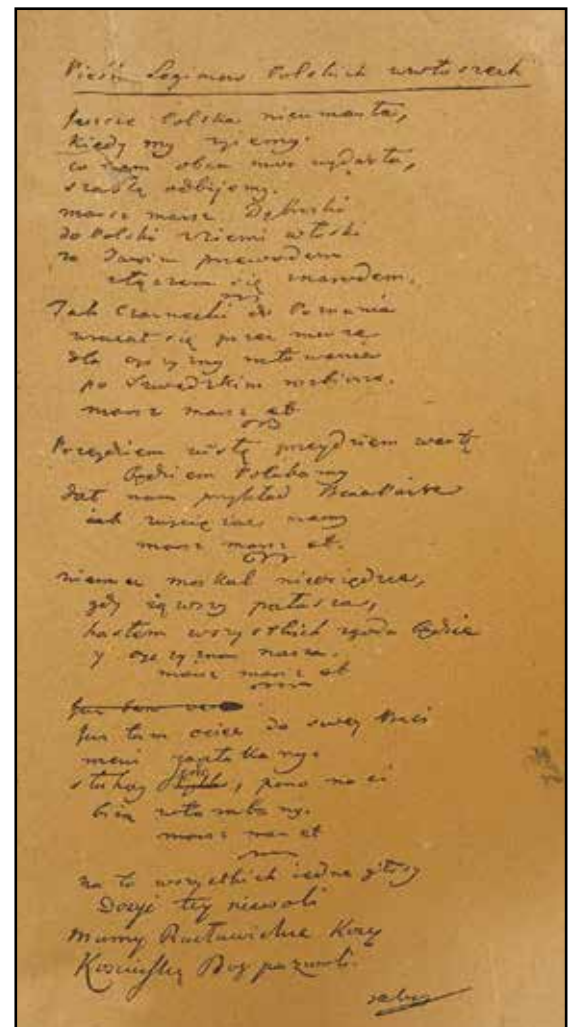 Pieśń Legionow Polskich wewłoszech
Jeszcze Polska nieumarła,
kiedy my żyiemy.
co nam obca moc wydarła,
szablą odbijemy.
marsz marsz Dąbrski
do Polski zziemi włoski
za Twoim przewodem
złączem się znarodem.
Jak Czarnecki do Poznania
wracał się przez morze
dla oyczyzny ratowania
po Szwedzkim rozbiorze.
marsz marsz et
Przeydziem wisłę przeydziem wartę
Będziem Polakamy
dał nam przykład Bonaparte
iak zwyciężać mamy
marsz marsz et.
niemiec moskal nieosiędzie,
gdy iąwszy pałasza,
hasłem wszystkich zgoda będzie
y oyczyzna nasza.
marsz marsz et
Już tam
Już tam ociec do swey Basi
mowi zapłakany.
słuchay , pono nasi
bią wtarabany.
marsz mar et
na to wszystkich iedne głosy
Dosyć tey niewoli
mamy Racławickie Kosy
Kosciuszkę Bog pozwoli.